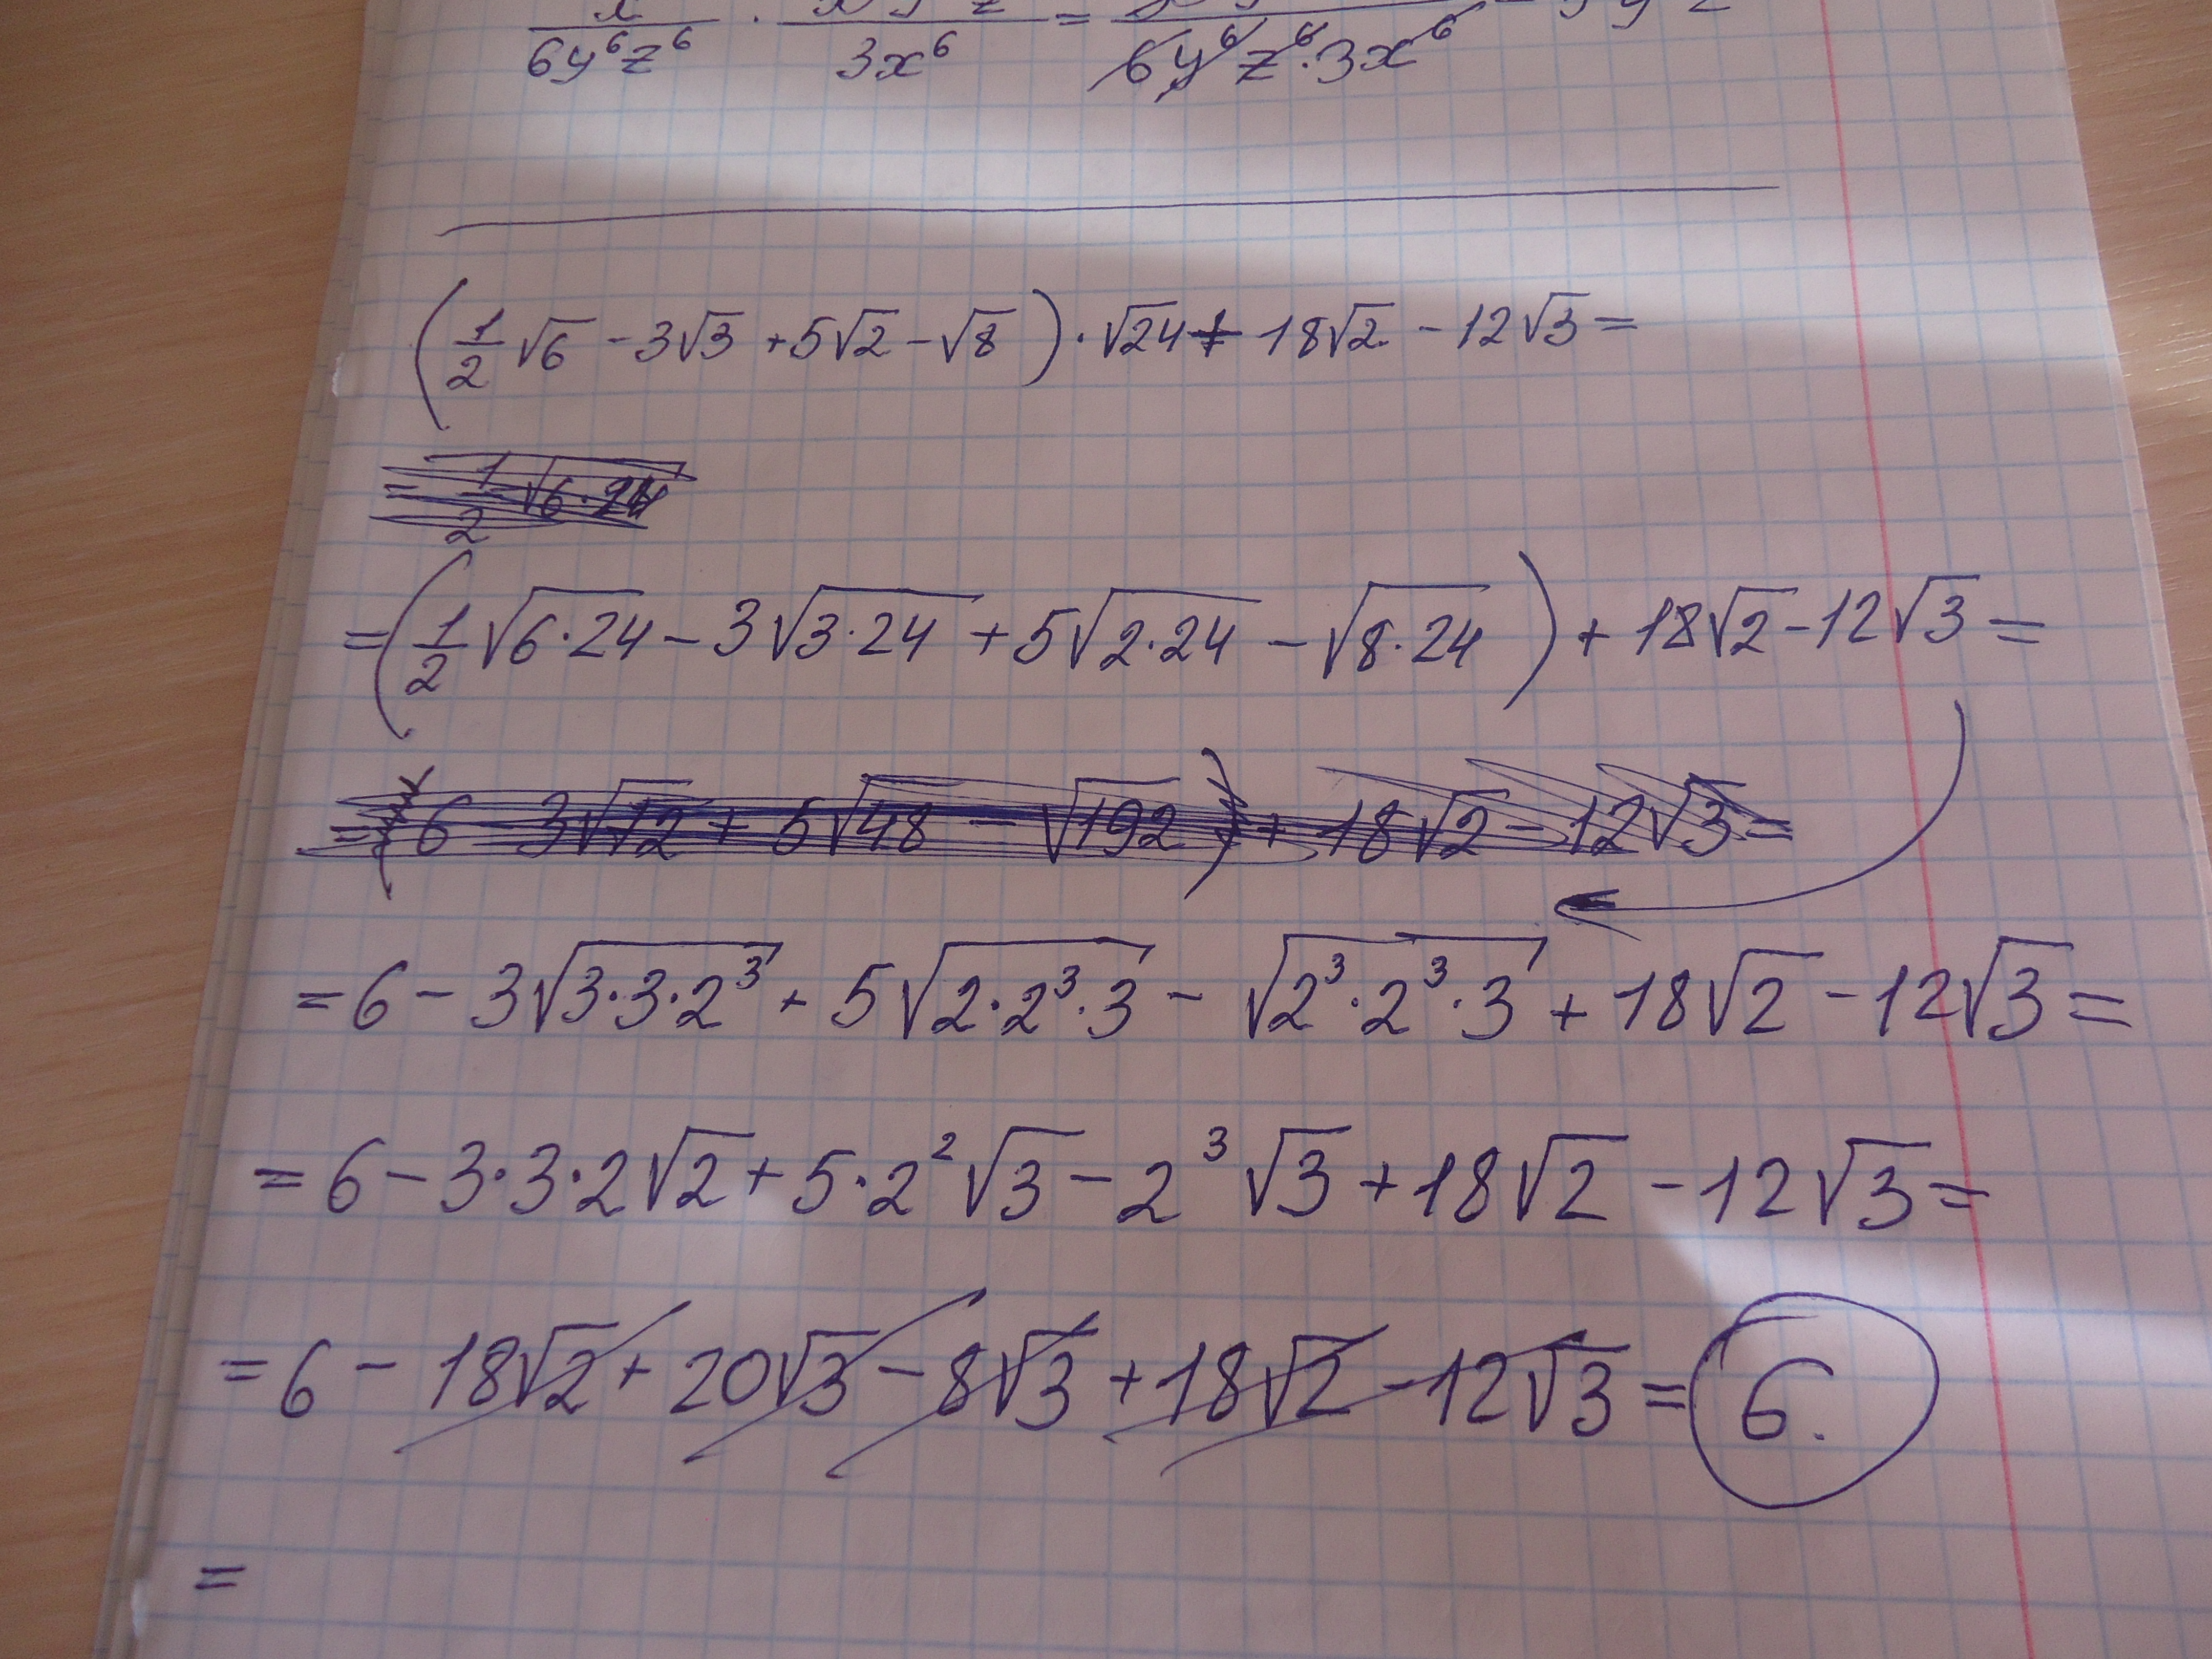 6y⁶z⁶ · 3x⁶ = 6y⁶z⁶·3x⁶
(1/2√6 - 3√3 + 5√2 - √8)·√24 + 18√2 - 12√3 =
= 1/2√6·24
= (1/2√6·24 - 3√3·24 + 5√2·24 - √8·24) + 18√2 - 12√3 =
= (6 - 3√72 + 5√48 - √192) + 18√2 - 12√3 =
= 6 - 3√3·3·2³ + 5√2·2³·3 - √2³·2³·3 + 18√2 - 12√3 =
= 6 - 3·3·2√2 + 5·2²√3 - 2³√3 + 18√2 - 12√3 =
= 6 - 18√2 + 20√3 - 8√3 + 18√2 - 12√3 = 6.
=